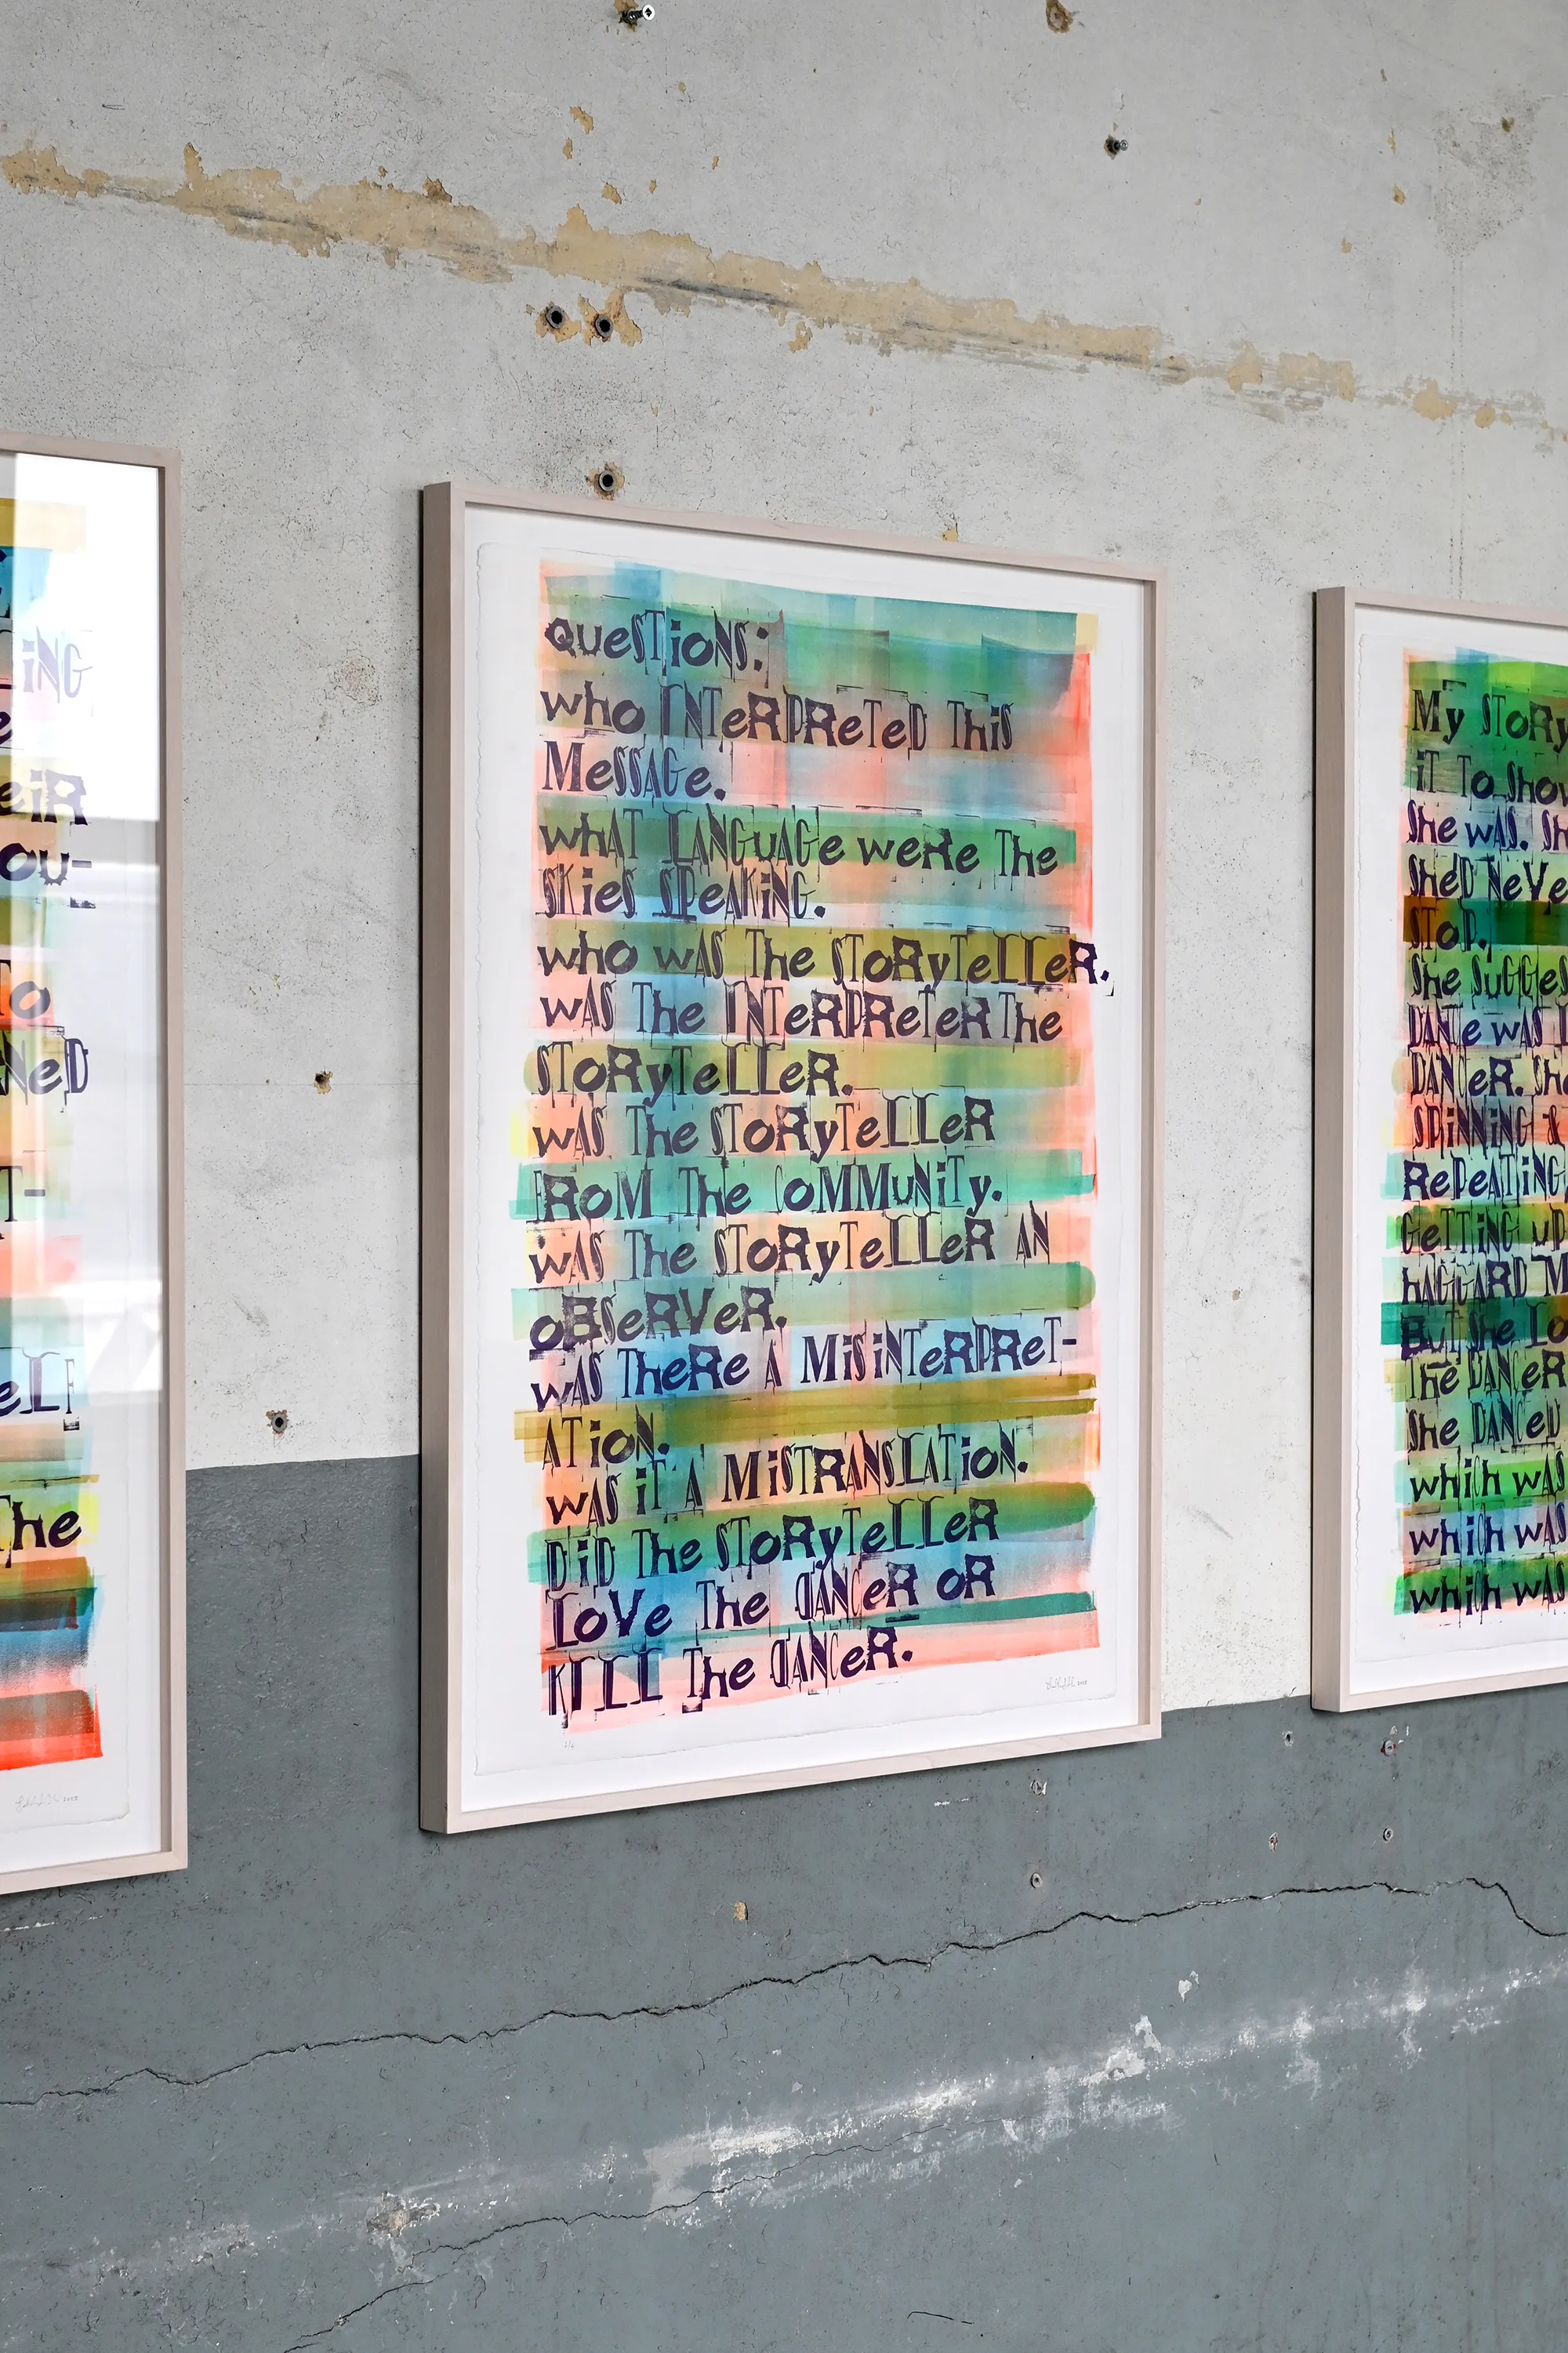 ING
e
eiR
ou-
To
NeD
T-
eLF
The
QUeSTioNS:
who INTeRPReTeD This
MeSSAGe.
whAT LANGUAGe weRe The
SKieS SPeAKiNG.
who wAS The SToRyTeLLeR.
wAS The INTeRPReTeR The
SToRyTeLLeR.
wAS The SToRyTeLLeR
FRoM The CoMMuNiTy.
wAS The SToRyTeLLeR AN
oBSeRVeR.
wAS TheRe A MiSiNTeRPReT-
ATioN.
wAS iT A MiSTRANSLATioN.
DiD The SToRyTeLLeR
LoVe The dANCeR oR
KILL The dANCeR.
My SToRy
iT To Show
She wAS. Sh
SheD NeVe
SToP.
She SuGGeS
DANTe wAS
DANCeR. She
SPiNNiNG &
RePeATiNG
GeTTiNG uP
hAGGARD M
BuT She Lo
The DANCeR
She DANCeD
which wAS
which wAS
which wAS